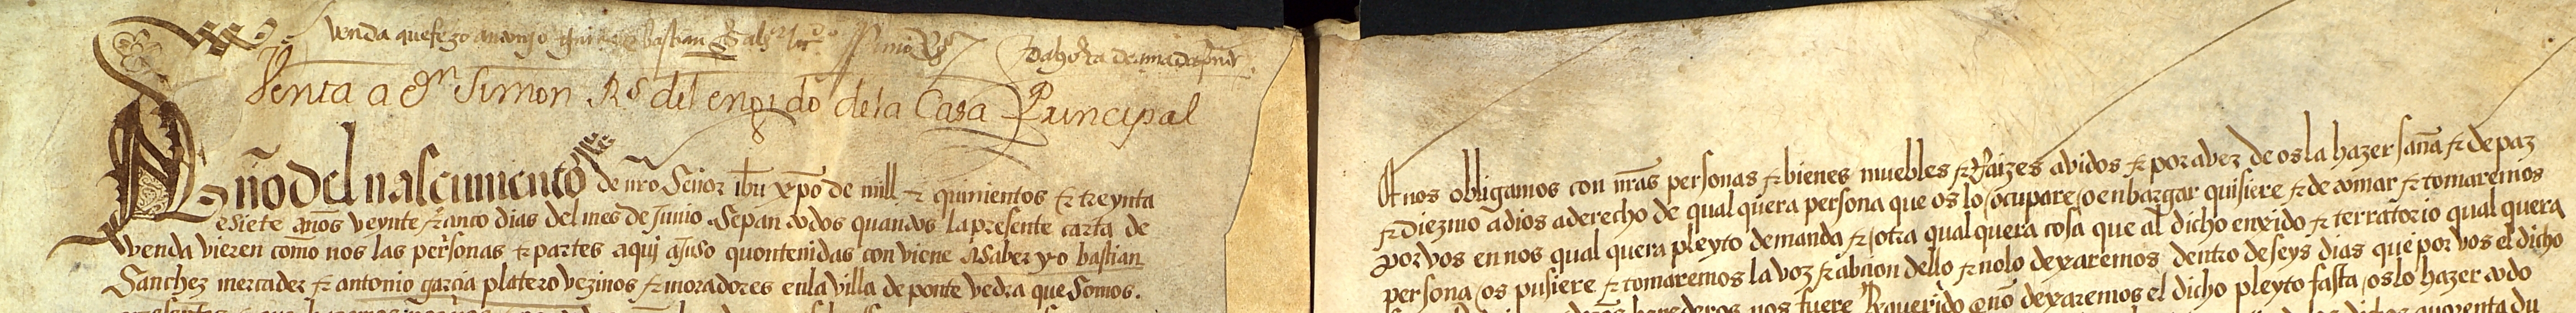 Venda que fezo antonio garcia e bastian
Venta a Simon Rs del enxido de la Casa Principal
Año del nascimiento de nro Señor ihu xpo de mill & quinientos & treynta
e siete años veynte & cinco dias del mes de Junio Sepan todos quantos la presente carta de
venda vieren como nos las personas & partes aqui a juso quontenidas conviene a saber yo bastian
Sanchez mercader & antonio garcia platero vezinos & moradores en la villa de ponte vedra que somos.
nos obligamos con nras personas & bienes muebles & Raizes abidos & por abez de os la hazer sana & de paz
& Diezmo a dios a derecho de qual quera persona que os lo ocupare o enbargar quisiere & de tomar & tomaremos
por vos en nos qual quera pleyto demanda & otra qual quera cosa que al dicho enxido & terratorio qual quera
persona os pusiere & tomaremos la voz & abcion dello & no lo dexaremos dentro de seys dias que por vos el dicho
herederos nos fuere Requerido & no dexaremos el dicho pleyto fasta os lo hazer todo